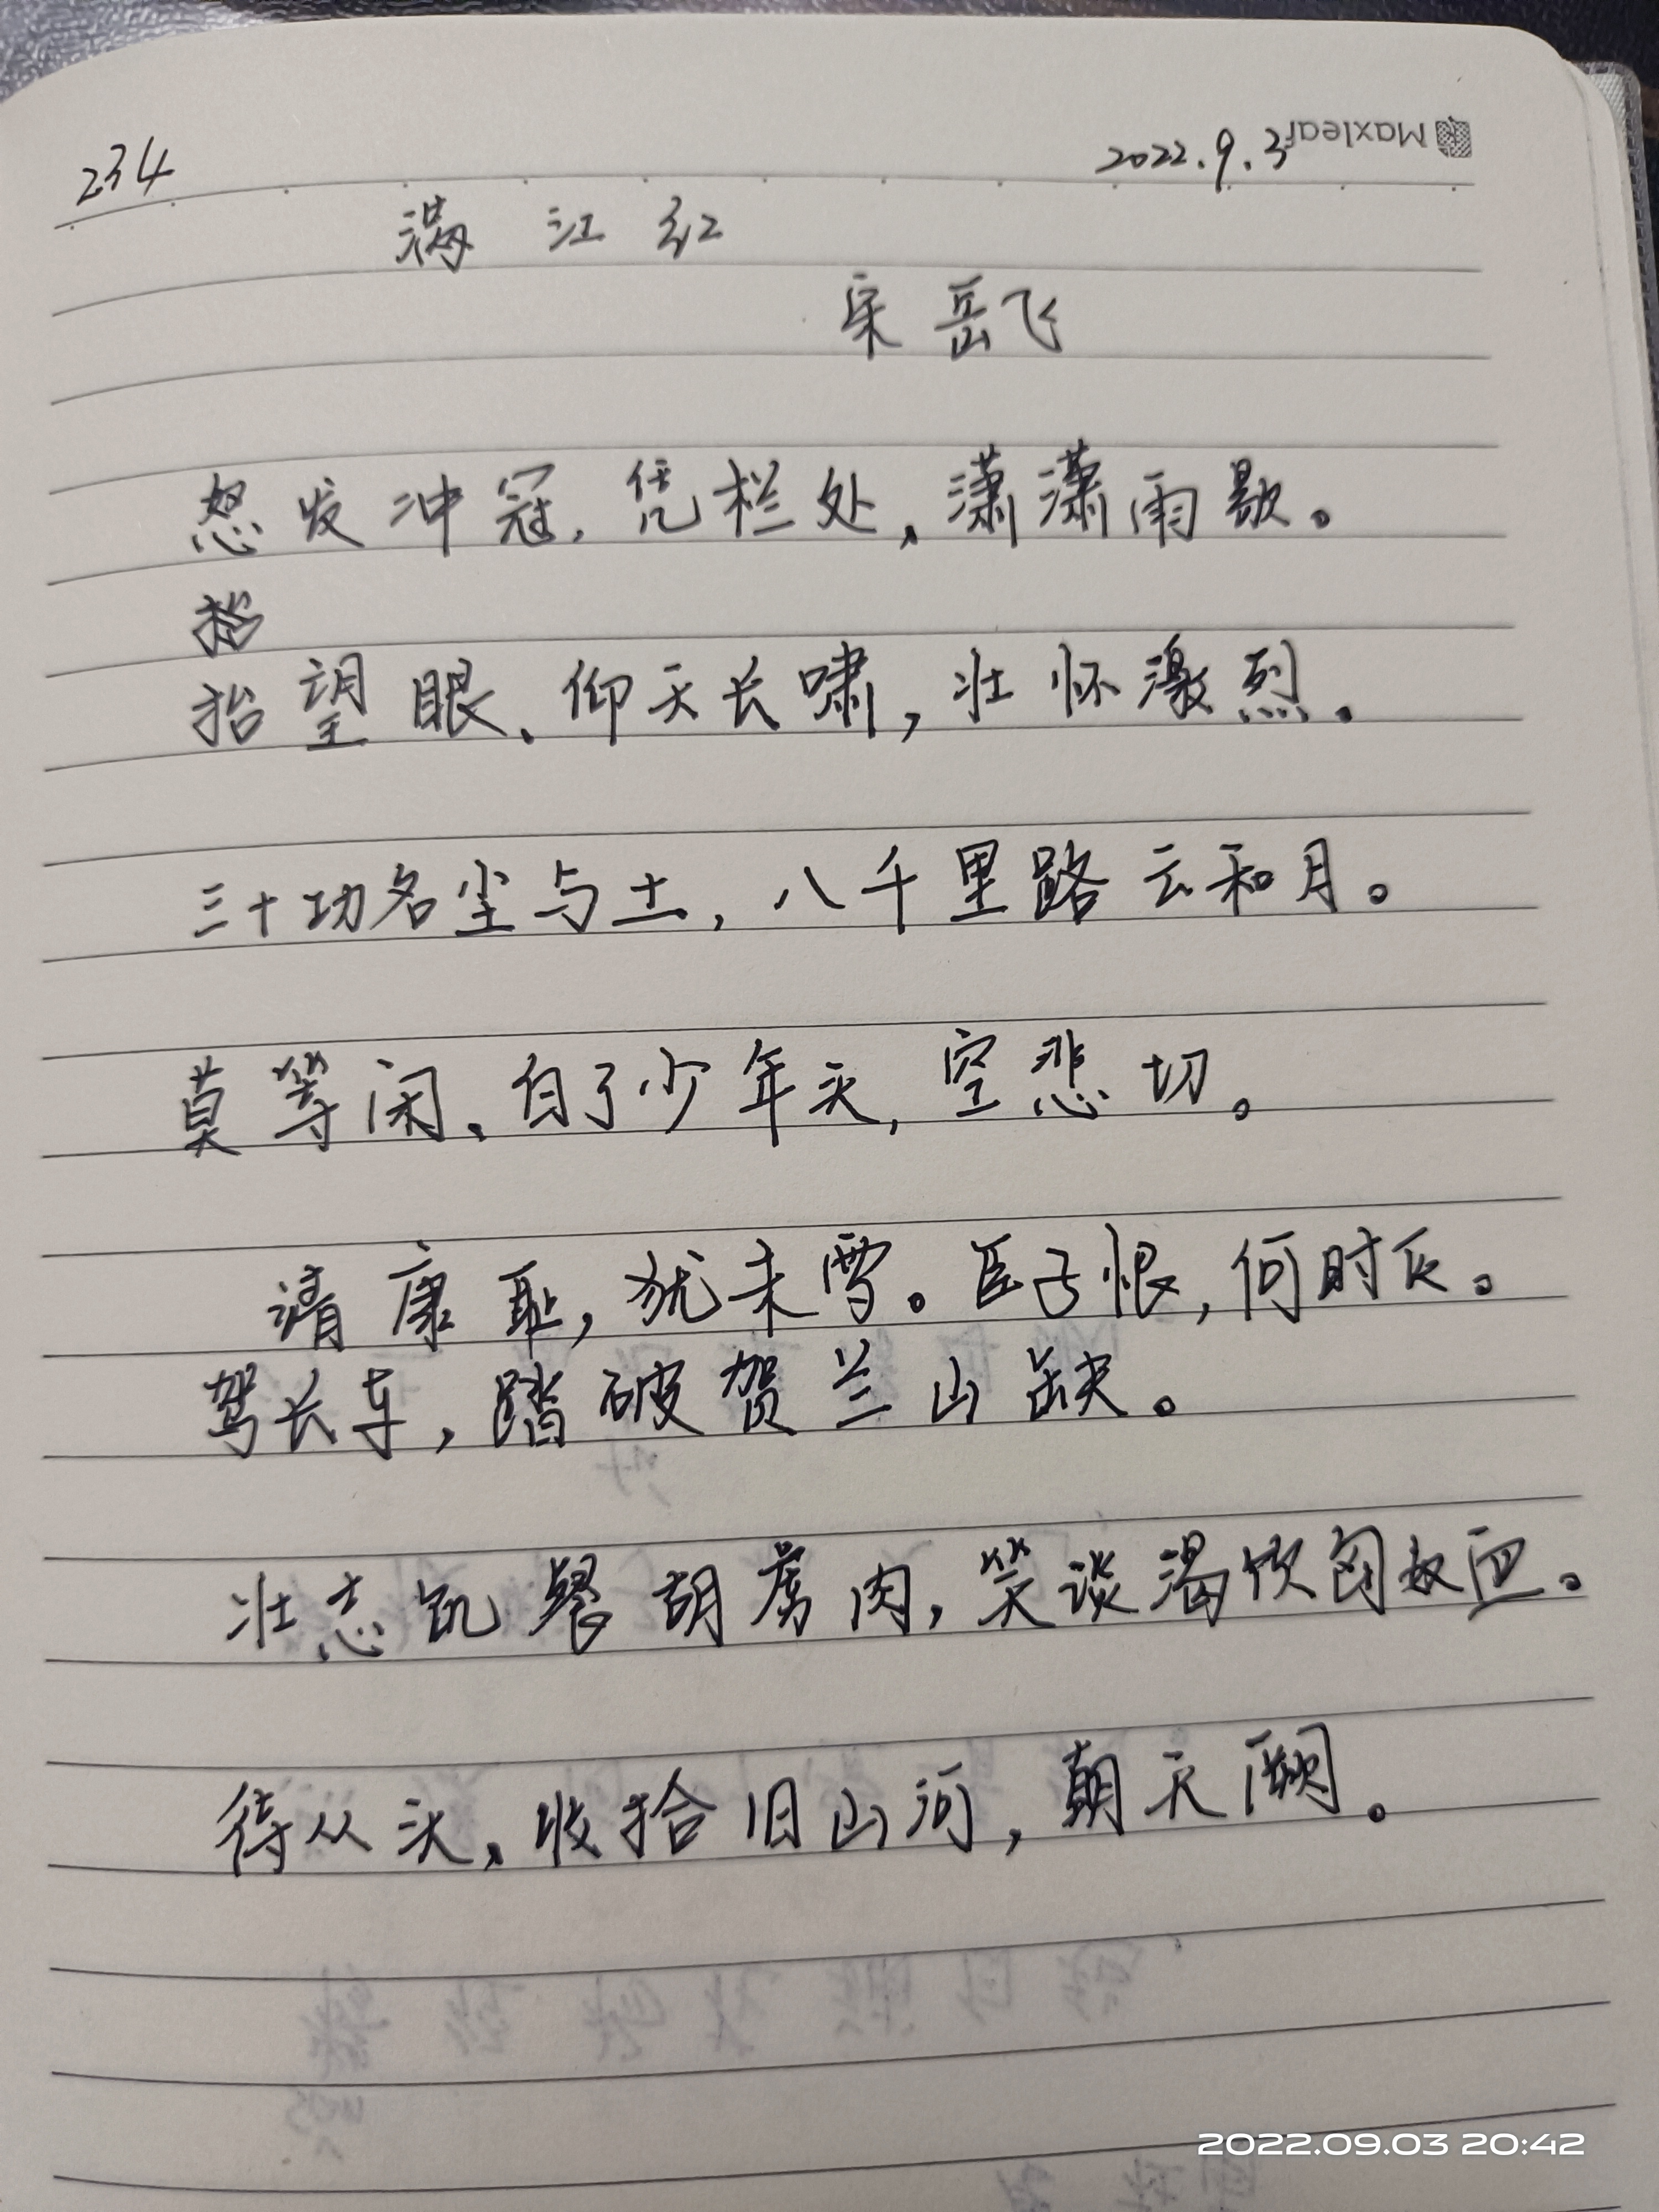 234
2022.9.3
Maxleaf
满江红
宋 岳飞
怒发冲冠,凭栏处、潇潇雨歇。
抬
抬望眼、仰天长啸,壮怀激烈。
三十功名尘与土,八千里路云和月。
莫等闲、白了少年头,空悲切。
靖康耻,犹未雪。臣子恨,何时灭。
驾长车,踏破贺兰山缺。
壮志饥餐胡虏肉,笑谈渴饮匈奴血。
待从头、收拾旧山河,朝天阙。
2022.09.03 20:42